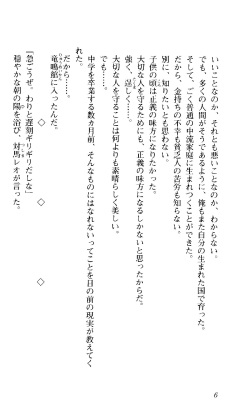 いいことなのか、それとも悪いことなのか、わからない。
でも、多くの人間がそうであるように、俺もまた自分の生まれた国で育った。
そして、ごく普通の中流家庭に生まれつくことができた。
だから、金持ちの不幸も貧乏人の苦労も知らない。
別に、知りたいとも思わない。
子供の頃は正義の味方になりたかった。
大切な人を守るためにも、正義の味方になるしかないと思ったからだ。
強く、正しく……。
大切な人を守ることは何よりも素晴らしく美しい。
でも……。
中学を卒業する数ヵ月前、そんなものにはなれないってことを目の前の現実が教えてく
れた。
だから……。
竜鳴館に入ったんだ。
◇　◇　◇
「急ごうぜ。わりと遅刻ギリギリだしな」
穏やかな朝の陽を浴び、対馬レオが言った。
6